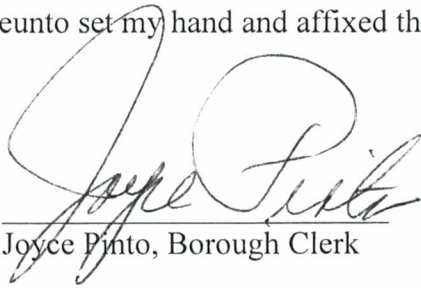 eunto set my hand and affixed th
Joyce Pinto
Joyce Pinto, Borough Clerk